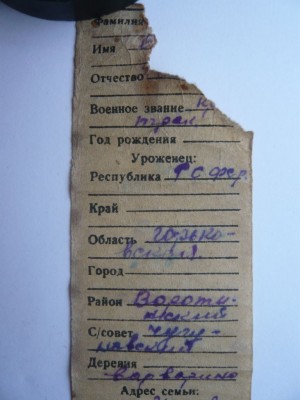 Фамилия
Имя
Отчество
Военное звание
Год рождения
Уроженец:
Республика РСФСР
Край
Область Горько-
вская
Город
Район Вороты-
нский
С/совет Чугу-
новский
Дерення Варварино
Адрес семьи: